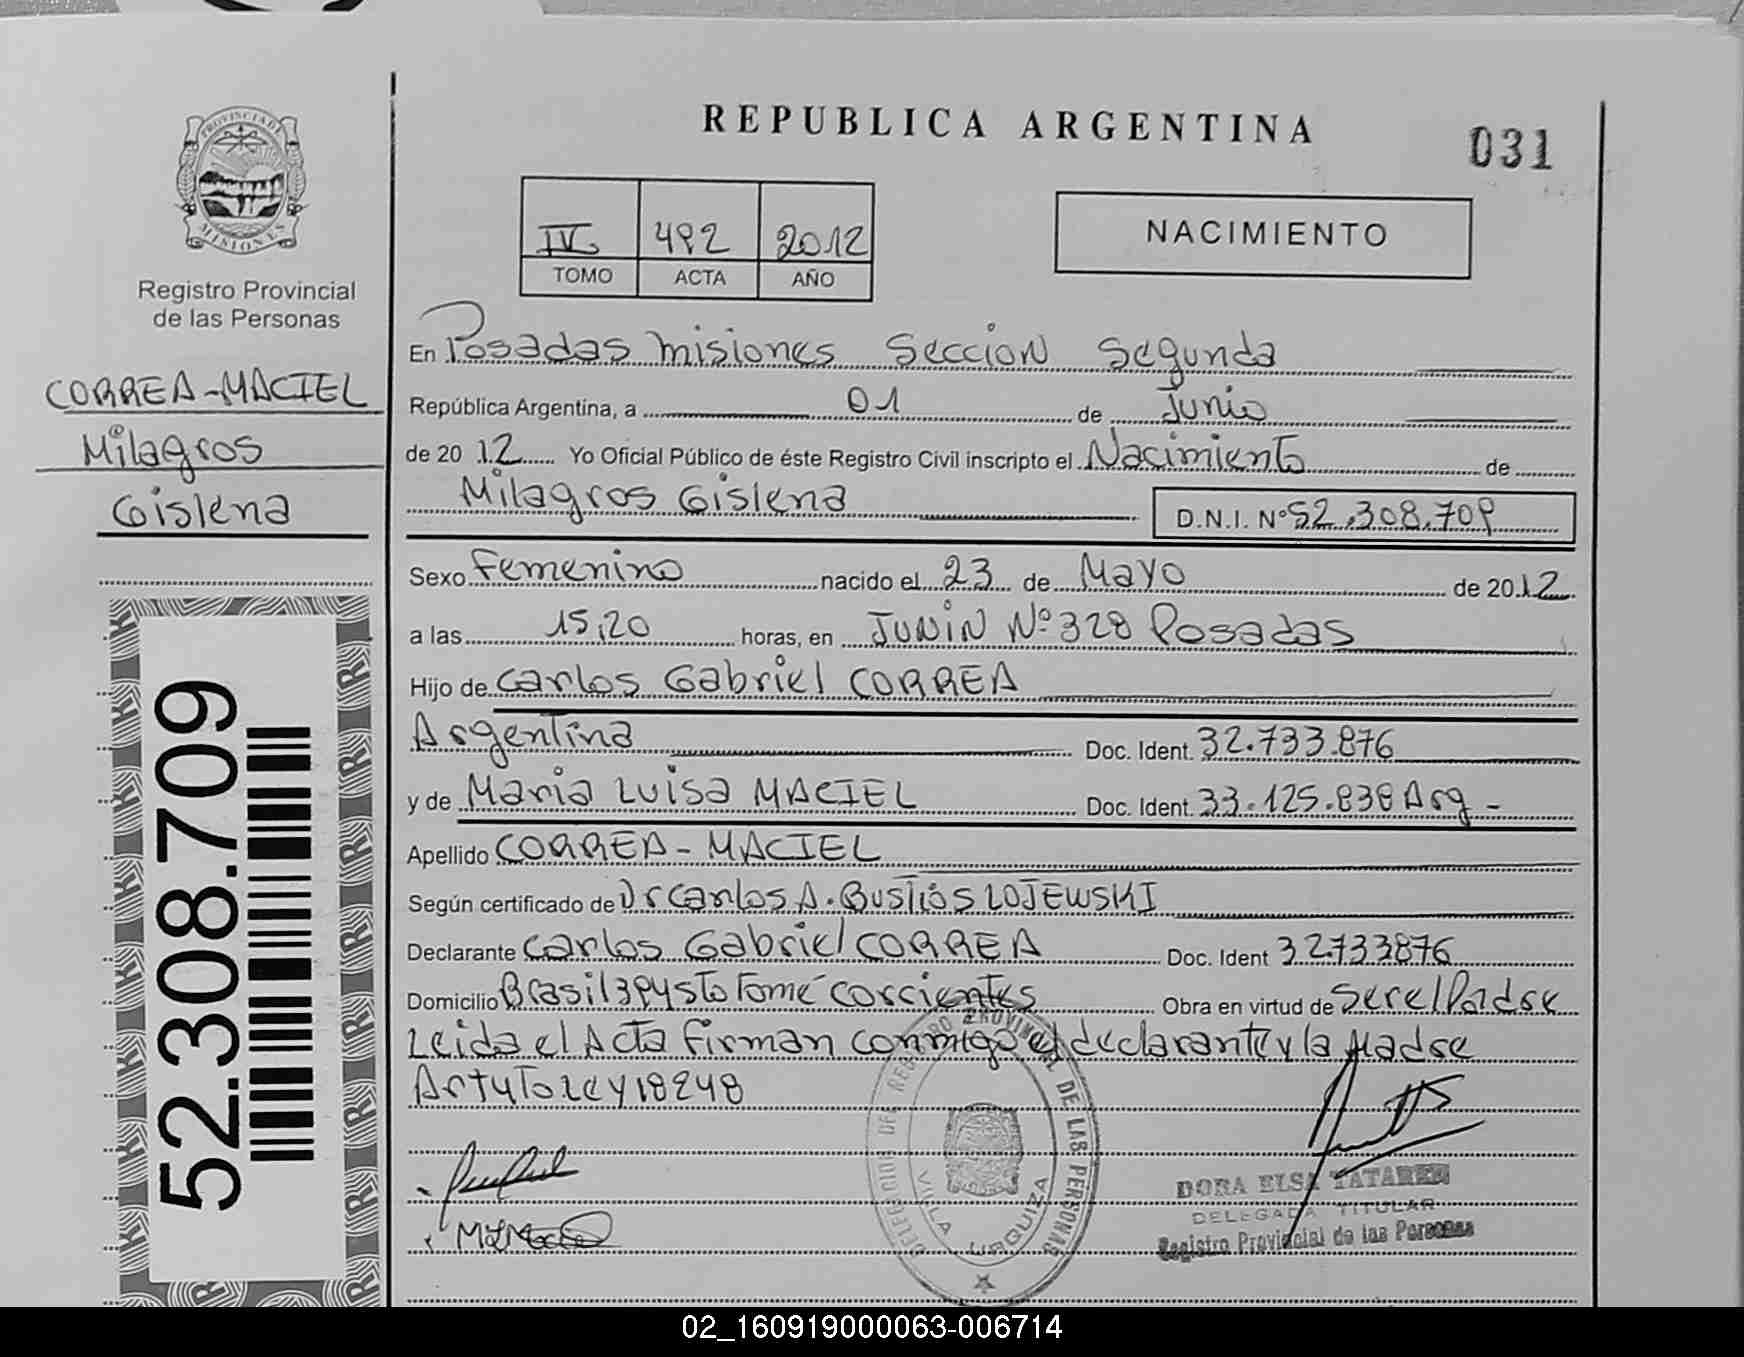 PROVINCIA DE
MISIONES
Registro Provincial
de las Personas
CORREA-MACIEL
Milagros
Gislena
52.308.709
REPUBLICA ARGENTINA
031
IV 492 2012
TOMO ACTA AÑO
NACIMIENTO
En Posadas Misiones Sección Segunda
República Argentina, a 01 de Junio
de 2012 Yo Oficial Público de éste Registro Civil inscripto el Nacimiento de
Milagros Gislena D.N.I. Nº 52.308.709
Sexo Femenino nacido el 23 de Mayo de 2012
a las 15,20 horas, en JUNIN Nº 328 Posadas
Hijo de Carlos Gabriel CORREA
Argentina Doc. Ident. 32.733.876
y de Maria Luisa MACIEL Doc. Ident. 33.125.838 Arg -
Apellido CORREA-MACIEL
Según certificado de Dr Carlos A. Bustios LOJEWSKI
Declarante Carlos Gabriel CORREA Doc. Ident 32733876
Domicilio Brasil y Sto Tomé Corrientes Obra en virtud de Ser el Padre
Leida el Acta Firman conmigo el declarante y la Madre
Ley 18248
DELEGACION DEL REGISTRO PROVINCIAL DE LAS PERSONAS
VILLA URQUIZA
DORA ELSA
DELEGADA TITULAR
Registro Provincial de las Personas
02_160919000063-006714